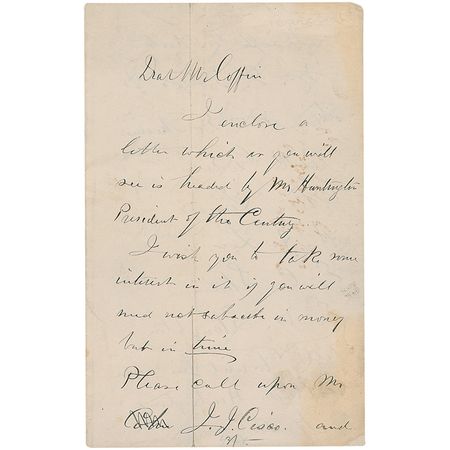 Dear Mr Coffin
I enclose a
letter which as you will
see is headed by Mr Huntington
President of the Century.
I wish you to take some
interest in it if you will
need not subscribe in money
but in time
Please call upon Mr
John J. Cisco. and